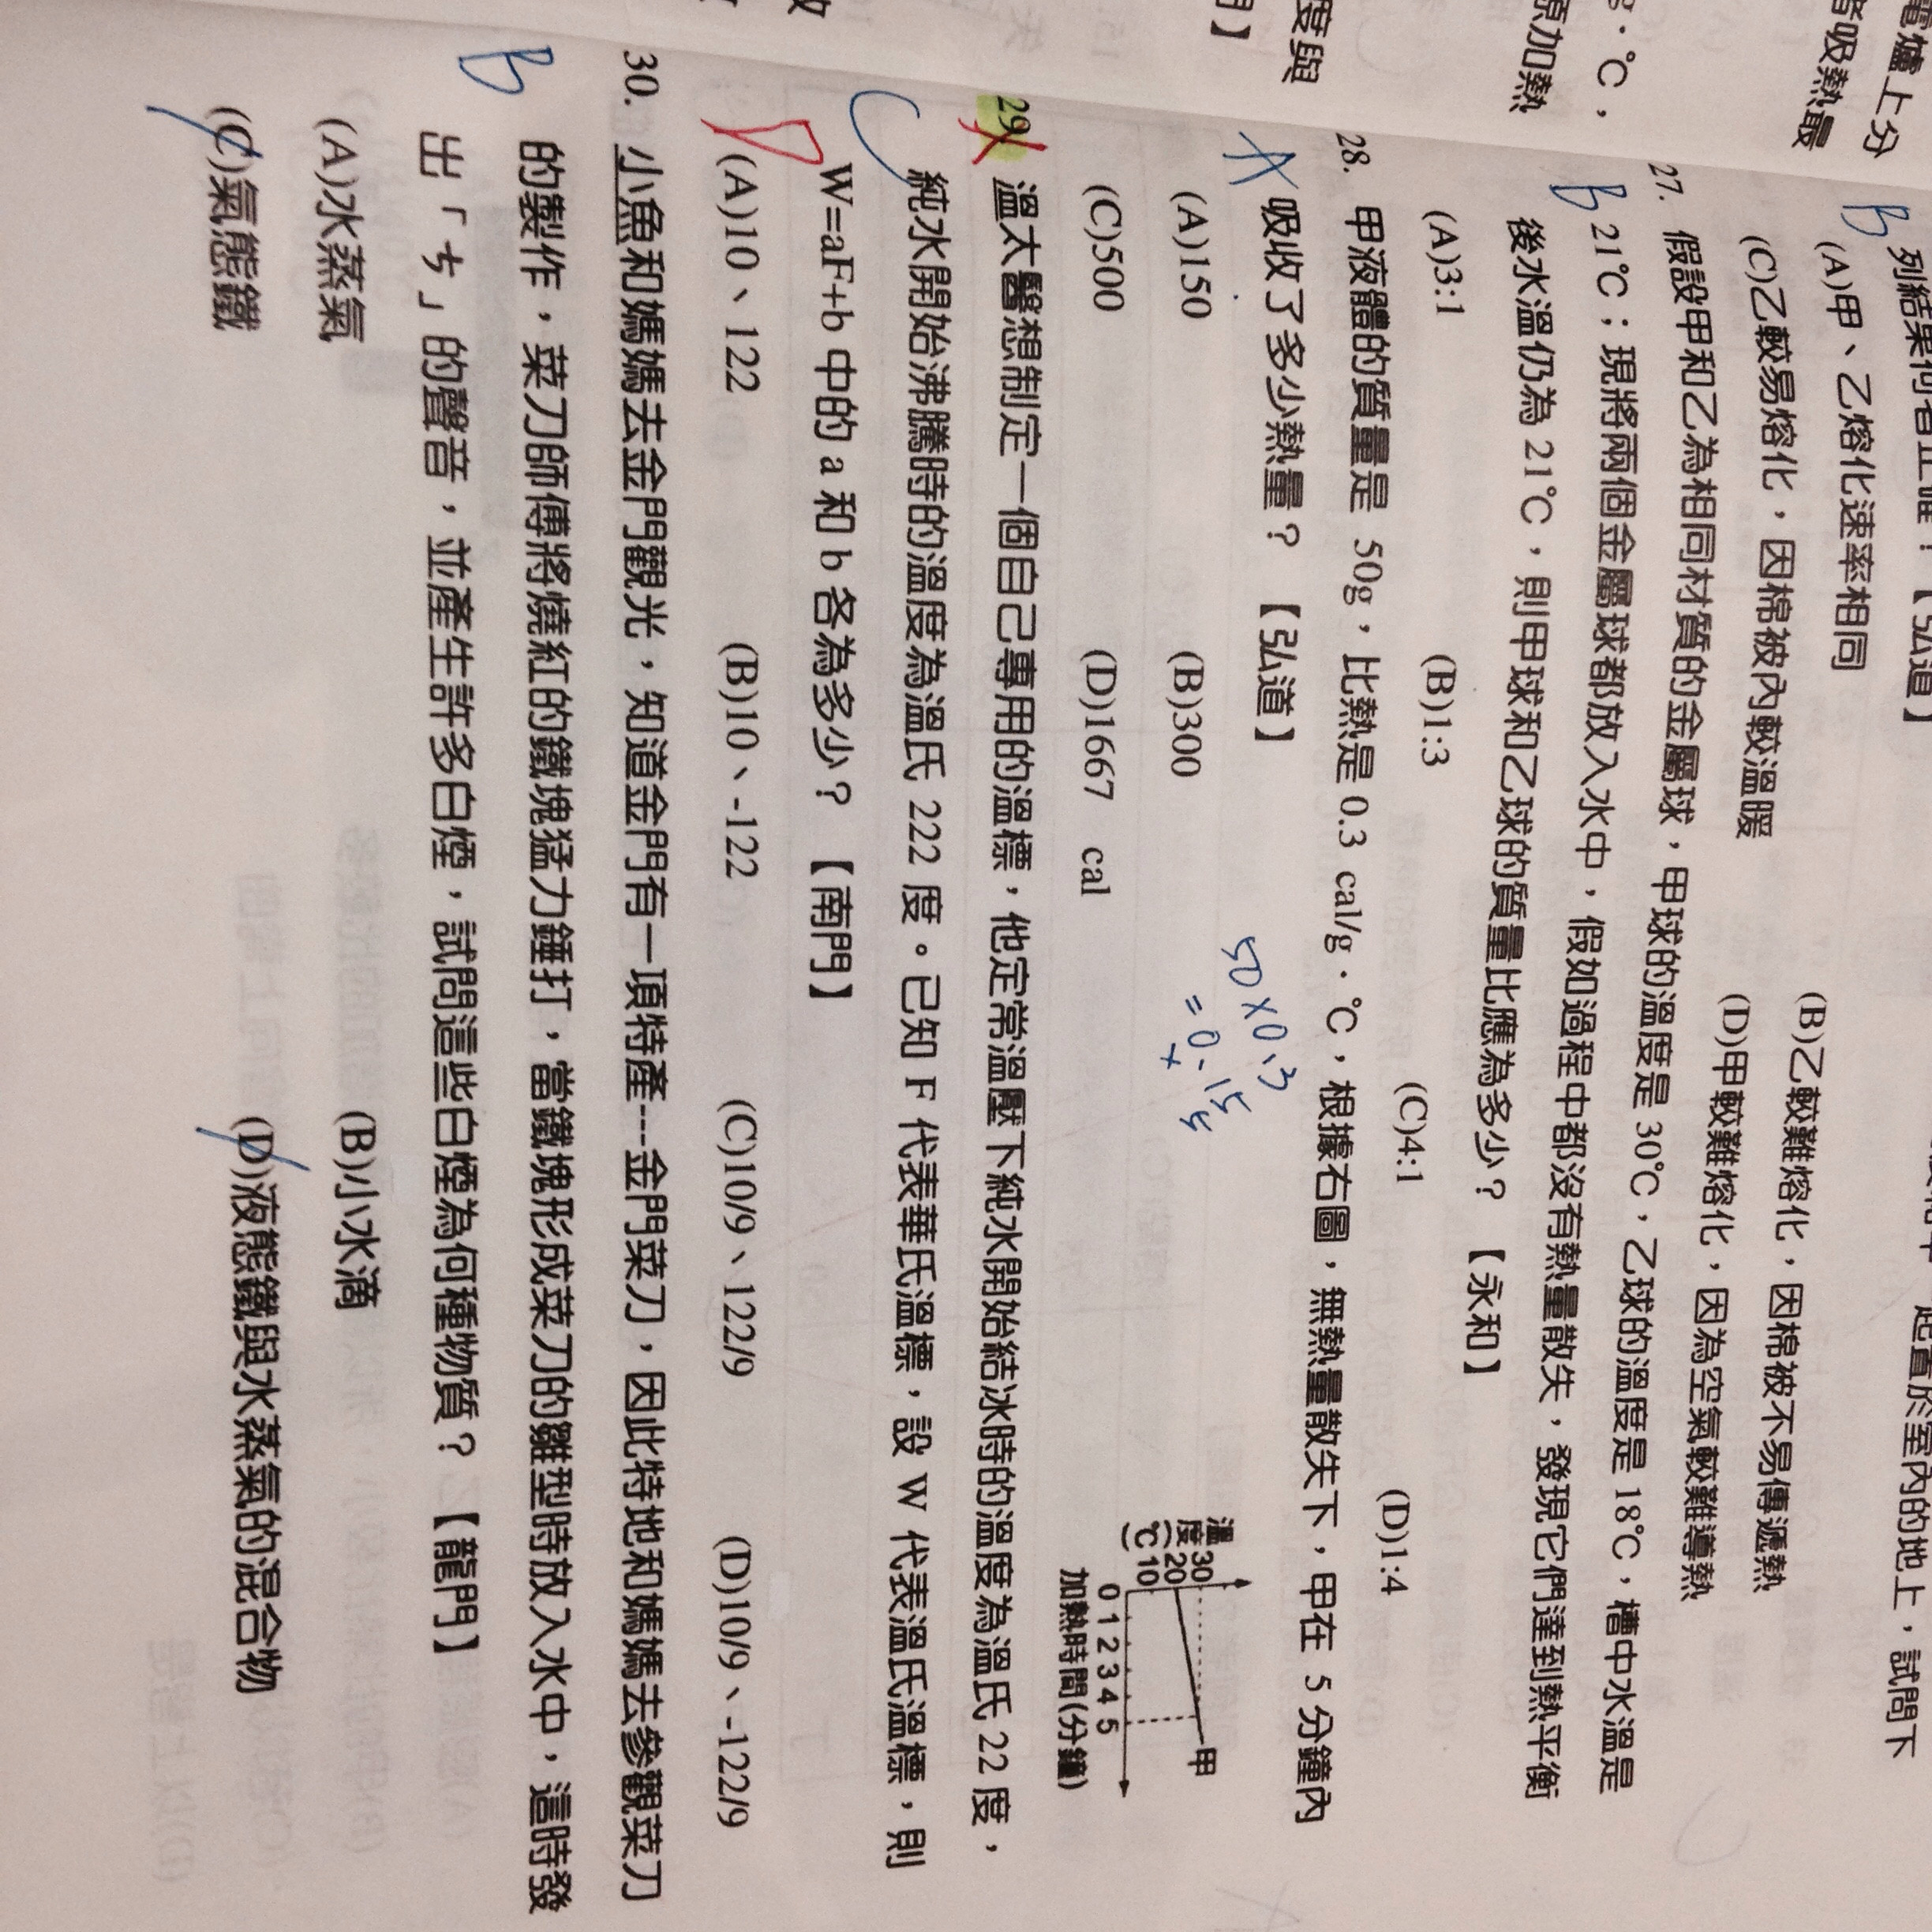 電爐上分
者吸熱最
g．℃，
原加熱
度與
列結果何者正確？【弘道】
起置於室內的地上，試問下
B
(A)甲、乙熔化速率相同
(B)乙較難熔化，因棉被不易傳遞熱
(C)乙較易熔化，因棉被內較溫暖
(D)甲較難熔化，因為空氣較難導熱
27. 假設甲和乙為相同材質的金屬球，甲球的溫度是 30℃，乙球的溫度是 18℃，槽中水溫是
B 21℃；現將兩個金屬球都放入水中，假如過程中都沒有熱量散失，發現它們達到熱平衡
後水溫仍為 21℃，則甲球和乙球的質量比應為多少？【永和】
(A)3:1 (B)1:3 (C)4:1 (D)1:4
28. 甲液體的質量是 50g，比熱是 0.3 cal/g．℃，根據右圖，無熱量散失下，甲在 5 分鐘內
A 吸收了多少熱量？【弘道】
(A)150 (B)300
(C)500 (D)1667 cal
50×0.3
=0.15
× 5
溫度(℃)
30
20
10
0 1 2 3 4 5
甲
加熱時間(分鐘)
29. 溫太醫想制定一個自己專用的溫標，他定常溫壓下純水開始結冰時的溫度為溫氏 22 度，
C 純水開始沸騰時的溫度為溫氏 222 度。已知 F 代表華氏溫標，設 W 代表溫氏溫標，則
W=aF+b 中的 a 和 b 各為多少？【南門】
D (A)10、122 (B)10、-122 (C)10/9、122/9 (D)10/9、-122/9
30. 小魚和媽媽去金門觀光，知道金門有一項特產---金門菜刀，因此特地和媽媽去參觀菜刀
B 的製作，菜刀師傅將燒紅的鐵塊猛力錘打，當鐵塊形成菜刀的雛型時放入水中，這時發
出「ㄘ」的聲音，並產生許多白煙，試問這些白煙為何種物質？【龍門】
(A)水蒸氣 (B)小水滴
(C)氣態鐵 (D)液態鐵與水蒸氣的混合物